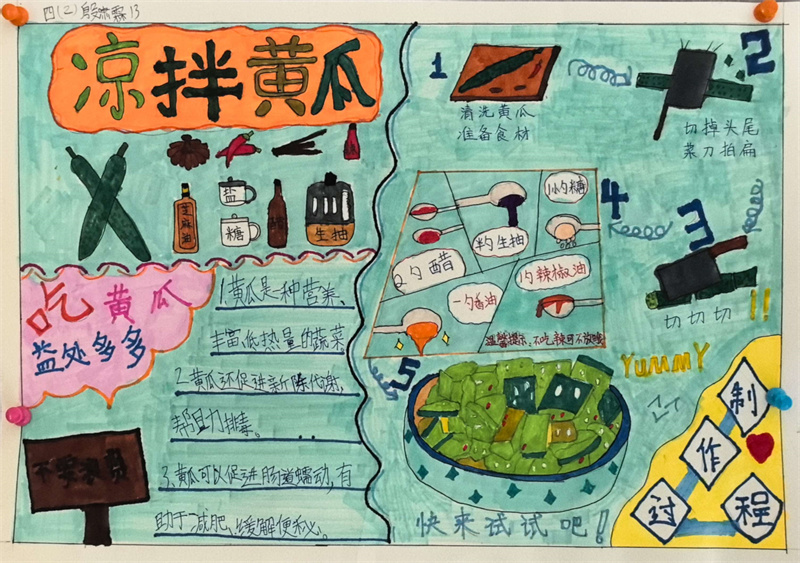 四(2)殷沐霖13
凉拌黄瓜
盐
芝麻油
糖
生抽
吃黄瓜
益处多多
1.黄瓜是一种营养、
丰富低热量的蔬菜
2.黄瓜还促进新陈代谢,
帮助力排毒。
3.黄瓜可以促进肠道蠕动,有
助于减肥、缓解便秘。
不要浪费
1
清洗黄瓜
准备食材
2
切掉头尾
菜刀拍扁
3
切切切!!
4
1小勺糖
半勺生抽
2勺醋
1勺辣椒油
一勺香油
温馨提示:不吃辣可不放哦
5
YUMMY
快来试试吧!
制
作
过
程